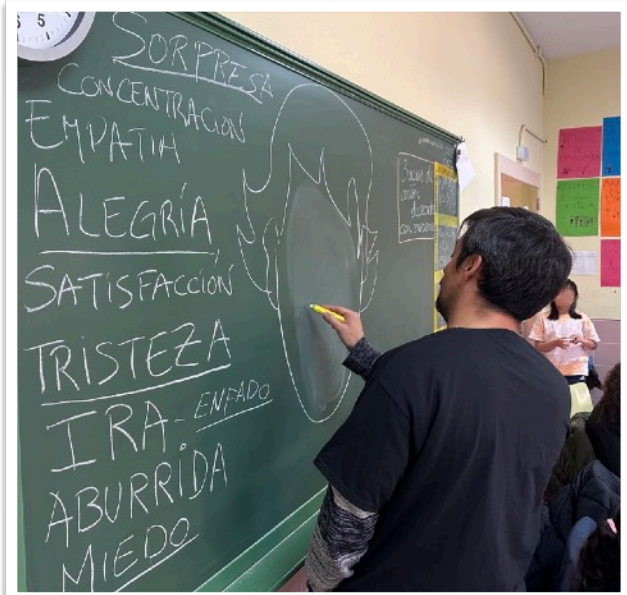 5
SORPRESA
CONCENTRACIÓN
EMPATIA
ALEGRÍA
SATISFACCIÓN
TRISTEZA
IRA-ENFADO
ABURRIDA
MIEDO